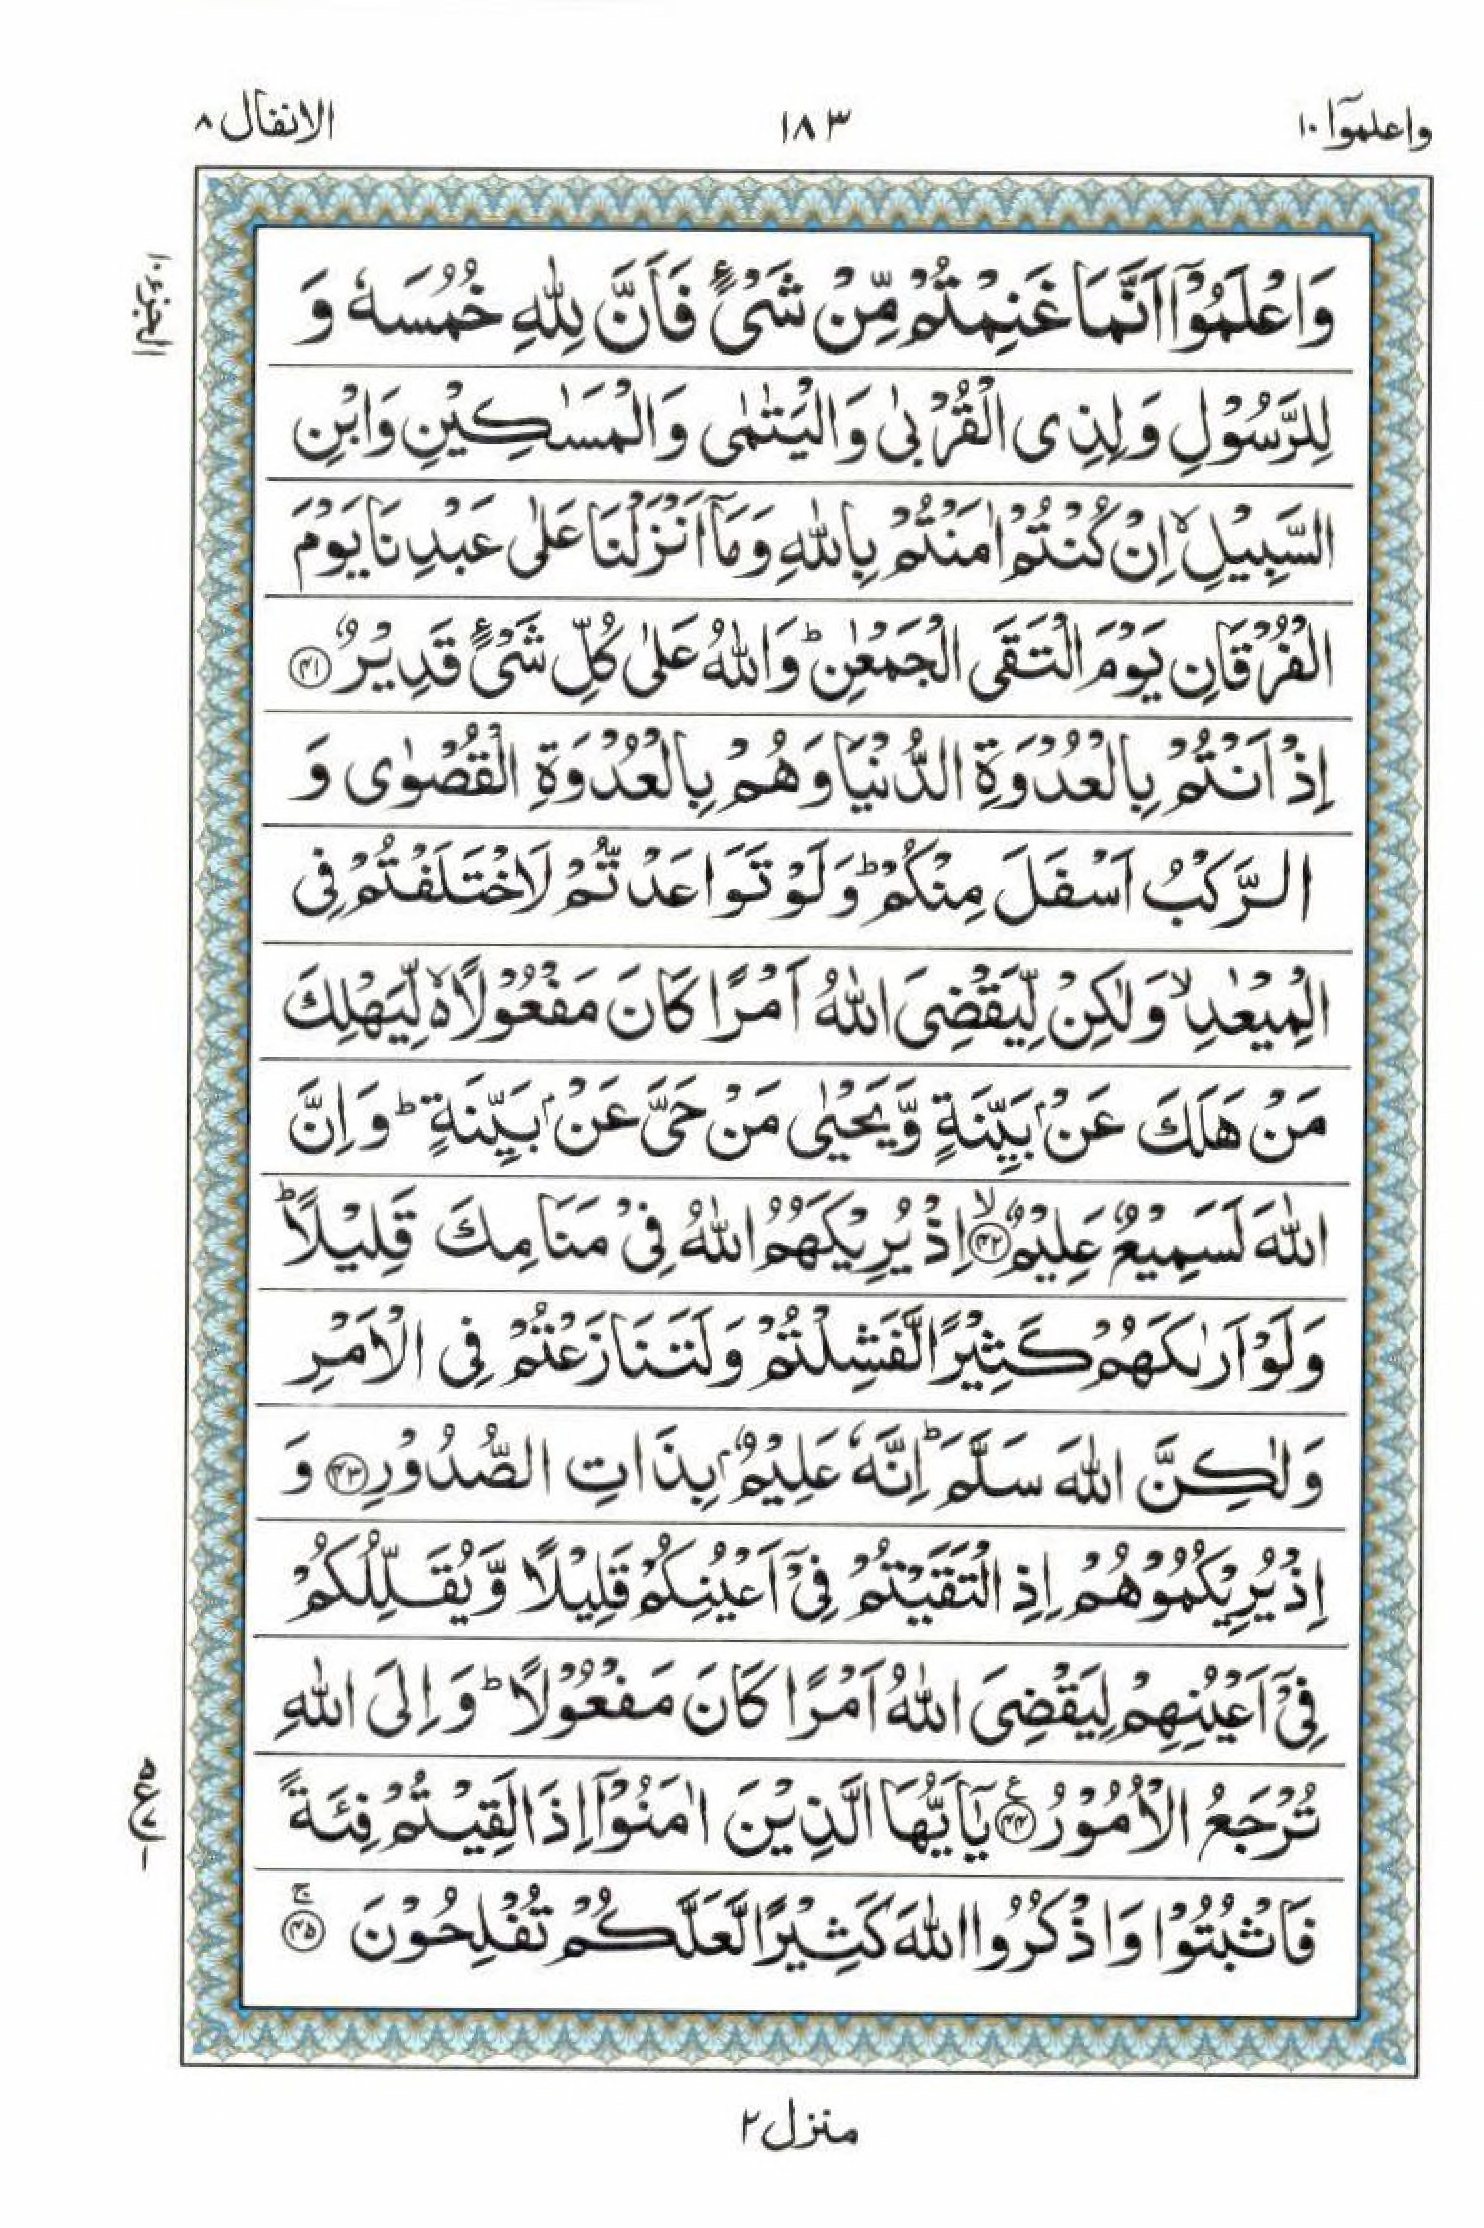 واعلموٓا ١٠
١٨٣
الانفال ٨
الجزء ١٠
وَاعْلَمُوْٓا اَنَّمَا غَنِمْتُمْ مِّنْ شَىْءٍ فَاَنَّ لِلّٰهِ خُمُسَهٗ وَ
لِلرَّسُوْلِ وَلِذِى الْقُرْبٰى وَالْيَتٰمٰى وَالْمَسٰكِيْنِ وَابْنِ
السَّبِيْلِ ۙ اِنْ كُنْتُمْ اٰمَنْتُمْ بِاللّٰهِ وَمَآ اَنْزَلْنَا عَلٰى عَبْدِنَا يَوْمَ
الْفُرْقَانِ يَوْمَ الْتَقَى الْجَمْعٰنِ ؕ وَاللّٰهُ عَلٰى كُلِّ شَىْءٍ قَدِيْرٌ ﴿۴۱﴾
اِذْ اَنْتُمْ بِالْعُدْوَةِ الدُّنْيَا وَهُمْ بِالْعُدْوَةِ الْقُصْوٰى وَ
الرَّكْبُ اَسْفَلَ مِنْكُمْ ؕ وَلَوْ تَوَاعَدْتُّمْ لَاخْتَلَفْتُمْ فِى
الْمِيْعٰدِ ۙ وَلٰكِنْ لِّيَقْضِىَ اللّٰهُ اَمْرًا كَانَ مَفْعُوْلًا ۙ۬ لِّيَهْلِكَ
مَنْ هَلَكَ عَنْۢ بَيِّنَةٍ وَّيَحْيٰى مَنْ حَىَّ عَنْۢ بَيِّنَةٍ ؕ وَاِنَّ
اللّٰهَ لَسَمِيْعٌ عَلِيْمٌ ﴿۴۲﴾ۙ اِذْ يُرِيْكَهُمُ اللّٰهُ فِىْ مَنَامِكَ قَلِيْلًا ؕ
وَلَوْ اَرٰىكَهُمْ كَثِيْرًا لَّفَشِلْتُمْ وَلَتَنَازَعْتُمْ فِى الْاَمْرِ
وَلٰكِنَّ اللّٰهَ سَلَّمَ ؕ اِنَّهٗ عَلِيْمٌۢ بِذَاتِ الصُّدُوْرِ ﴿۴۳﴾ وَ
اِذْ يُرِيْكُمُوْهُمْ اِذِ الْتَقَيْتُمْ فِىْٓ اَعْيُنِكُمْ قَلِيْلًا وَّيُقَلِّلُكُمْ
فِىْٓ اَعْيُنِهِمْ لِيَقْضِىَ اللّٰهُ اَمْرًا كَانَ مَفْعُوْلًا ؕ وَاِلَى اللّٰهِ
تُرْجَعُ الْاُمُوْرُ ﴿۴۴﴾ يٰٓاَيُّهَا الَّذِيْنَ اٰمَنُوْٓا اِذَا لَقِيْتُمْ فِئَةً
فَاثْبُتُوْا وَاذْكُرُوا اللّٰهَ كَثِيْرًا لَّعَلَّكُمْ تُفْلِحُوْنَ ﴿۴۵﴾ۚ
منزل ٢